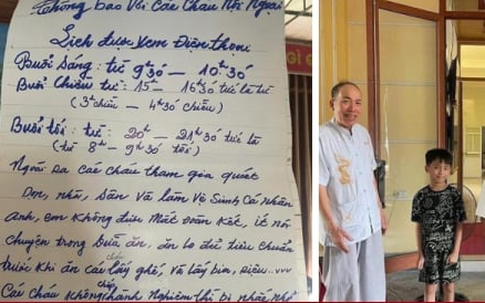 Thông báo Với Các Cháu Nội Ngoại
Lịch được xem Điện thoại
Buổi Sáng: từ 9h30 — 10h30
Buổi Chiều từ: 15h — 16h30 tức là từ
(3h chiều — 4h30 chiều)
Buổi tối: từ: 20h — 21h30 tức là
(từ 8h — 9h30 tối)
Ngoài ra các cháu tham gia quét
Dọn, nhà, sân Và làm Vệ Sinh Cá nhân
anh, em không được Mất đoàn kết, ít nói
chuyện trong bữa ăn, ăn đủ tiêu chuẩn
trước khi ăn cái lấy ghế, Và lấy bia, rượu...vvv
Các cháu không chấp hành Nghiêm thì bị nhắc nhở